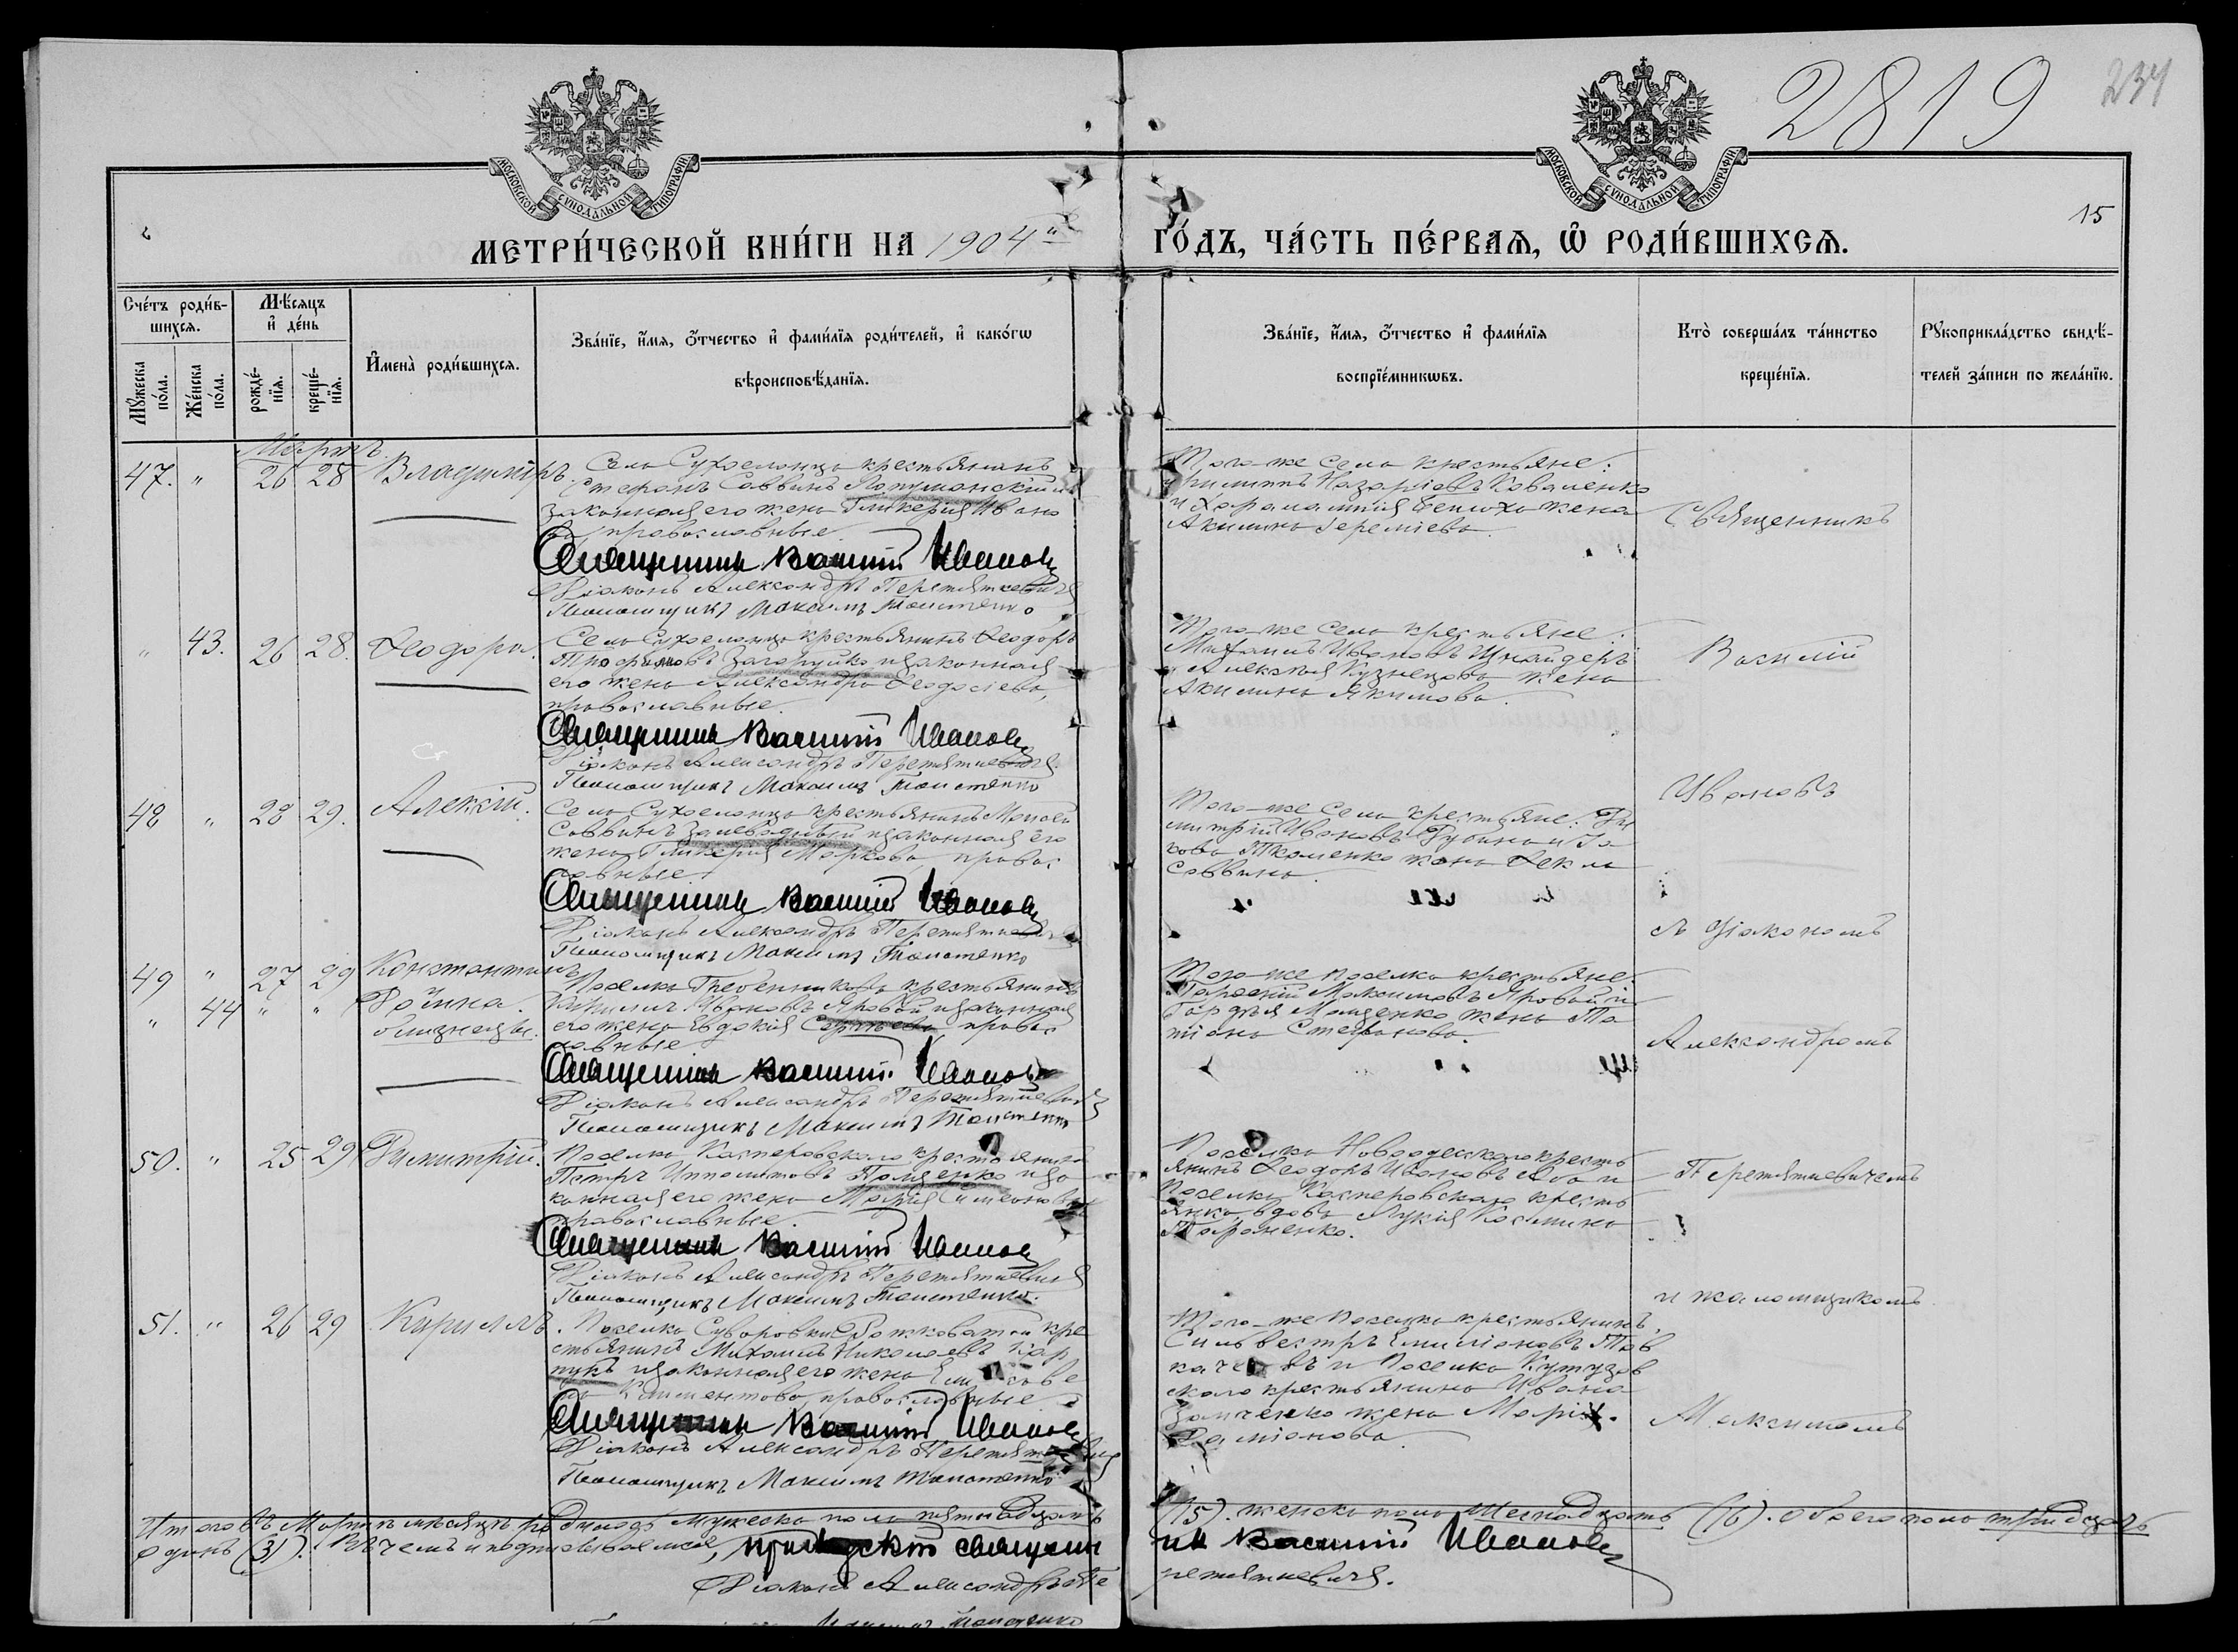 2819
234
МОСКОВСКОЙ СѴНОДАЛЬНОЙ ТИПОГРАФІИ
МОСКОВСКОЙ СѴНОДАЛЬНОЙ ТИПОГРАФІИ
15
МЕТРИ́ЧЕСКОЙ КНИ́ГИ НА 1904
ГО́ДЪ, ЧА́СТЬ ПЕ́РВАЯ, Ѿ РОДИ́ВШИХСЯ.
Сче́тъ роди́в-
шихся.
Мѣ́сяцъ
и҆ де́нь
Мꙋ́жеска по́ла.
Же́нска по́ла.
рожде́-нїя.
креще́-нїя.
И҆мена̀ роди́вшихся.
Зва́нїе, и҆́мя, ѻ҆́тчество и҆ фами́лїя роди́телей, и҆ како́гѡ
вѣроисповѣ́данїя.
Зва́нїе, и҆́мя, ѻ҆́тчество и҆ фами́лїя
воспрїе́мникѡвъ.
Кто̀ соверша́лъ та́инство
креще́нїя.
Рꙋкоприкла́дство свидѣ́-
телей за́писи по жела́нїю.
Мартъ
47. " 26 28 Владиміръ.
Села Сухоеланца крестьянинъ
Стефанъ Саввинъ и
законная его жена Гликерія Ивано
ва православные.
Священникъ Василій Ивановъ
Діаконъ Александръ Перетяткевичъ
Псаломщикъ Максимъ Толстенко
Того-же села крестьяне:
Назаріевъ Коваленко
и Харалампія жена
Акилина Іереміева.
Священникъ
" 43. 26 28. Ѳеодора.
Села Сухоеланца крестьянинъ Ѳеодоръ
Трофимовъ Загоруйко и законная
его жена Александра Ѳеодосіева,
православные.
Священникъ Василій Ивановъ
Діаконъ Александръ Перетяткевичъ
Псаломщикъ Максимъ Толстенко
Того-же села крестьяне:
Михаилъ Ивановъ Шнайдеръ
и Алексѣя Кузнецова жена
Акилина Якимова.
Василій
48 " 28 29. Алексій.
Села Сухоеланца крестьянинъ Моисей
Саввинъ и законная его
жена Гликерія Маркова, правос
лавные.
Священникъ Василій Ивановъ
Діаконъ Александръ Перетяткевичъ
Псаломщикъ Максимъ Толстенко
Того-же села крестьяне: Ди
митрій Ивановъ и Іа
кова Ткаченко жена Ѳекла
Саввина.
Ивановъ
съ діакономъ
49 " 27 29 Константинъ
" 44 " " Фаина.
близнецы.
Поселка Гребенникова крестьянинъ
Кириллъ Ивановъ Яровой и законная
его жена Евдокія правос
лавные
Священникъ Василій Ивановъ
Діаконъ Александръ Перетяткевичъ
Псаломщикъ Максимъ Толстенко
Того-же поселка крестьяне:
Максимовъ Яровой и
Гордѣя жена Та
тіана Стефанова.
Александромъ
50. " 25 29 Димитрій.
Поселка Касперовскаго крестьянинъ
Петръ Ипполитовъ и за
конная его жена Марія Симеонова
православные.
Священникъ Василій Ивановъ
Діаконъ Александръ Перетяткевичъ
Псаломщикъ Максимъ Толстенко.
Поселка Новоодесскаго кресть
янинъ Ѳеодоръ Ивановъ и
Поселка Касперовскаго кресть
янка вдова Лукія Космина
Тараненко.
Перетяткевичемъ
и псаломщикомъ
51. " 26 29 Кириллъ.
Поселка Суворовки кре
стьянинъ Михаилъ Николаевъ Кар
пукъ и законная его жена Елисаве
та Климентова, православные.
Священникъ Василій Ивановъ
Діаконъ Александръ Перетяткевичъ
Псаломщикъ Максимъ Толстенко
Того-же поселка крестьянинъ
Сильвестръ Емиліановъ
и поселка Кутузов
скаго крестьянина Ивана
жена Марія
Даміанова.
Максимомъ
Итого въ Мартѣ мѣсяцѣ родилось мужеска пола пятнадцать (15). женска пола шестнадцать (16). Обоего пола тридцать
одинъ (31). Въ чемъ и подписываемся, приходскій священникъ Василій Ивановъ
Діаконъ Александръ Перетяткевичъ.